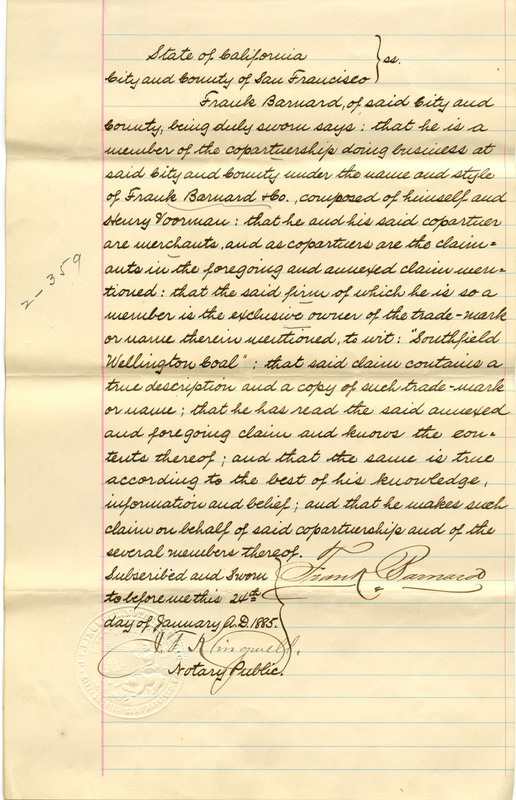 State of California } ss.
City and County of San Francisco
Frank Barnard, of said City and
County, being duly sworn says: that he is a
member of the copartnership doing business at
said City and County under the name and style
of Frank Barnard & Co., composed of himself and
Henry Voorman: that he and his said copartner
are merchants, and as copartners are the claim=
ants in the foregoing and annexed claim men=
tioned: that the said firm of which he is so a
member is the exclusive owner of the trade-mark
or name therein mentioned, to wit: "Southfield
Wellington Coal": that said claim contains a
true description and a copy of such trade-mark
or name; that he has read the said annexed
and foregoing claim and knows the con=
tents thereof; and that the same is true
according to the best of his knowledge,
information and belief; and that he makes such
claim on behalf of said copartnership and of the
several members thereof.
Subscribed and Sworn } Frank Barnard
to before me this 24th
day of January A.D. 1885.
J. F. Kingwell.
Notary Public.
2-359